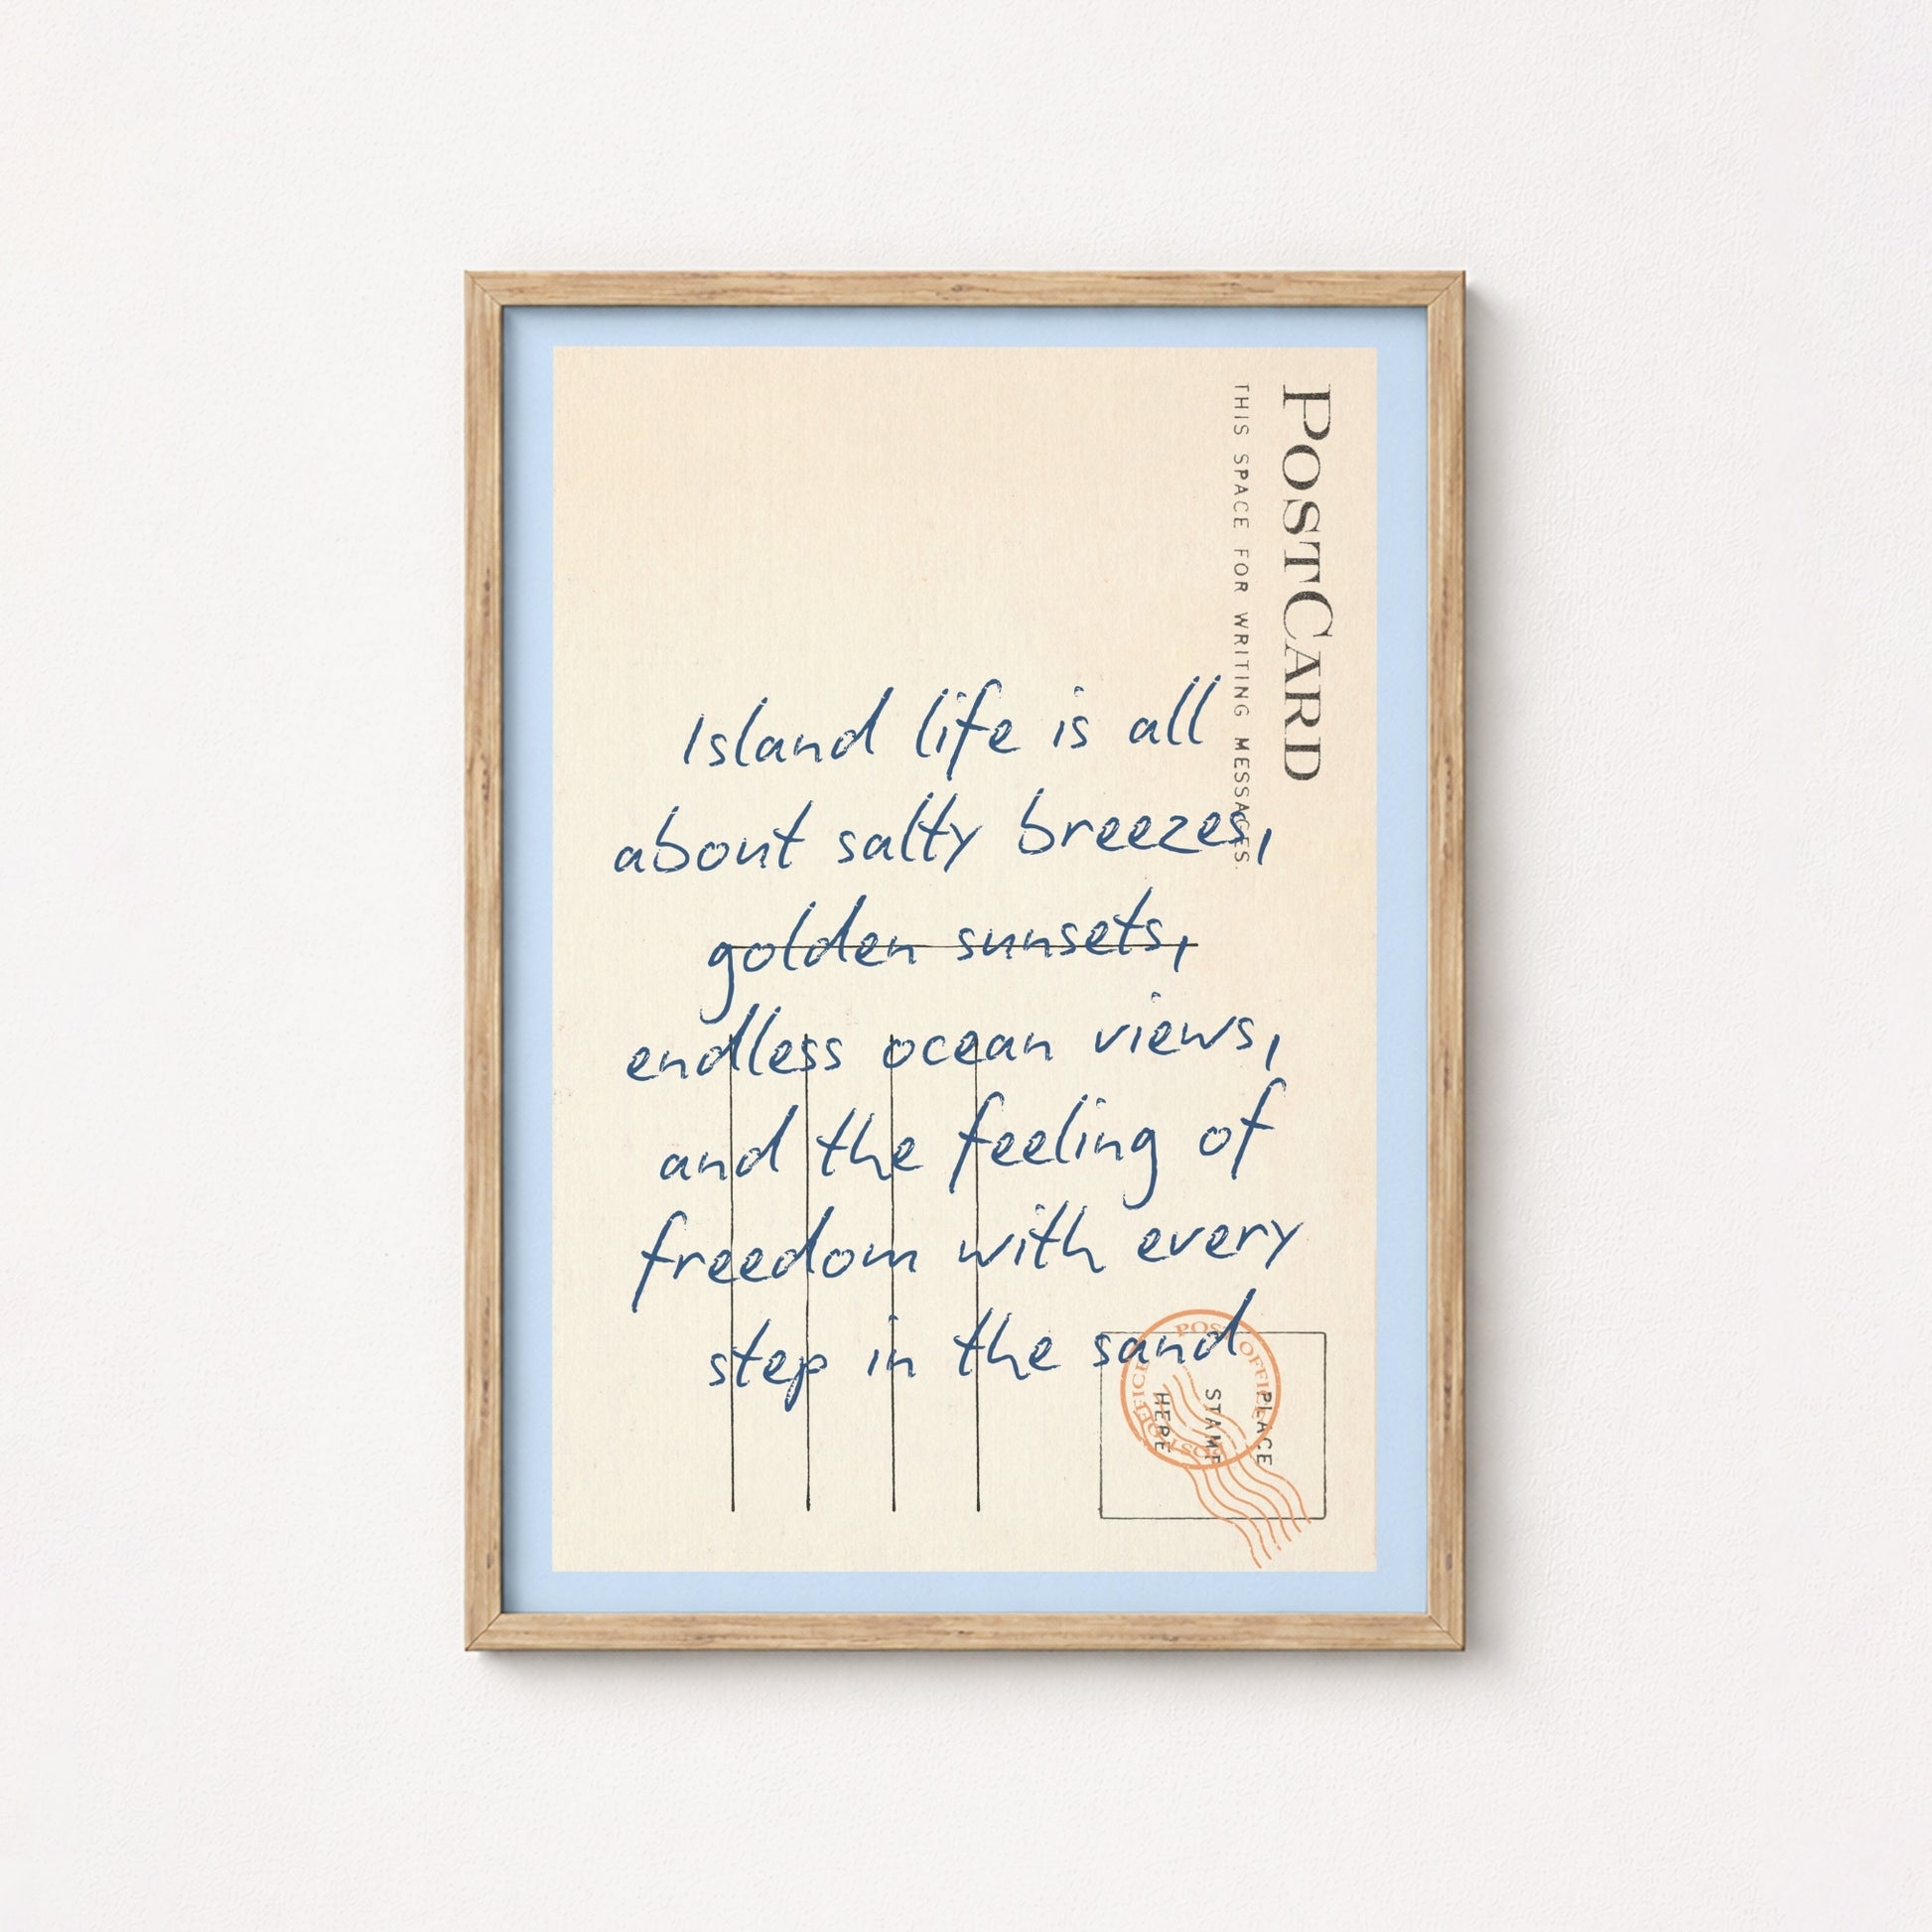 POSTCARD
THIS SPACE FOR WRITING MESSAGES.
Island life is all
about salty breezes,
golden sunsets,
endless ocean views,
and the feeling of
freedom with every
step in the sand
PLACE
STAMP
HERE
POST OFFICE
POST OFFICE